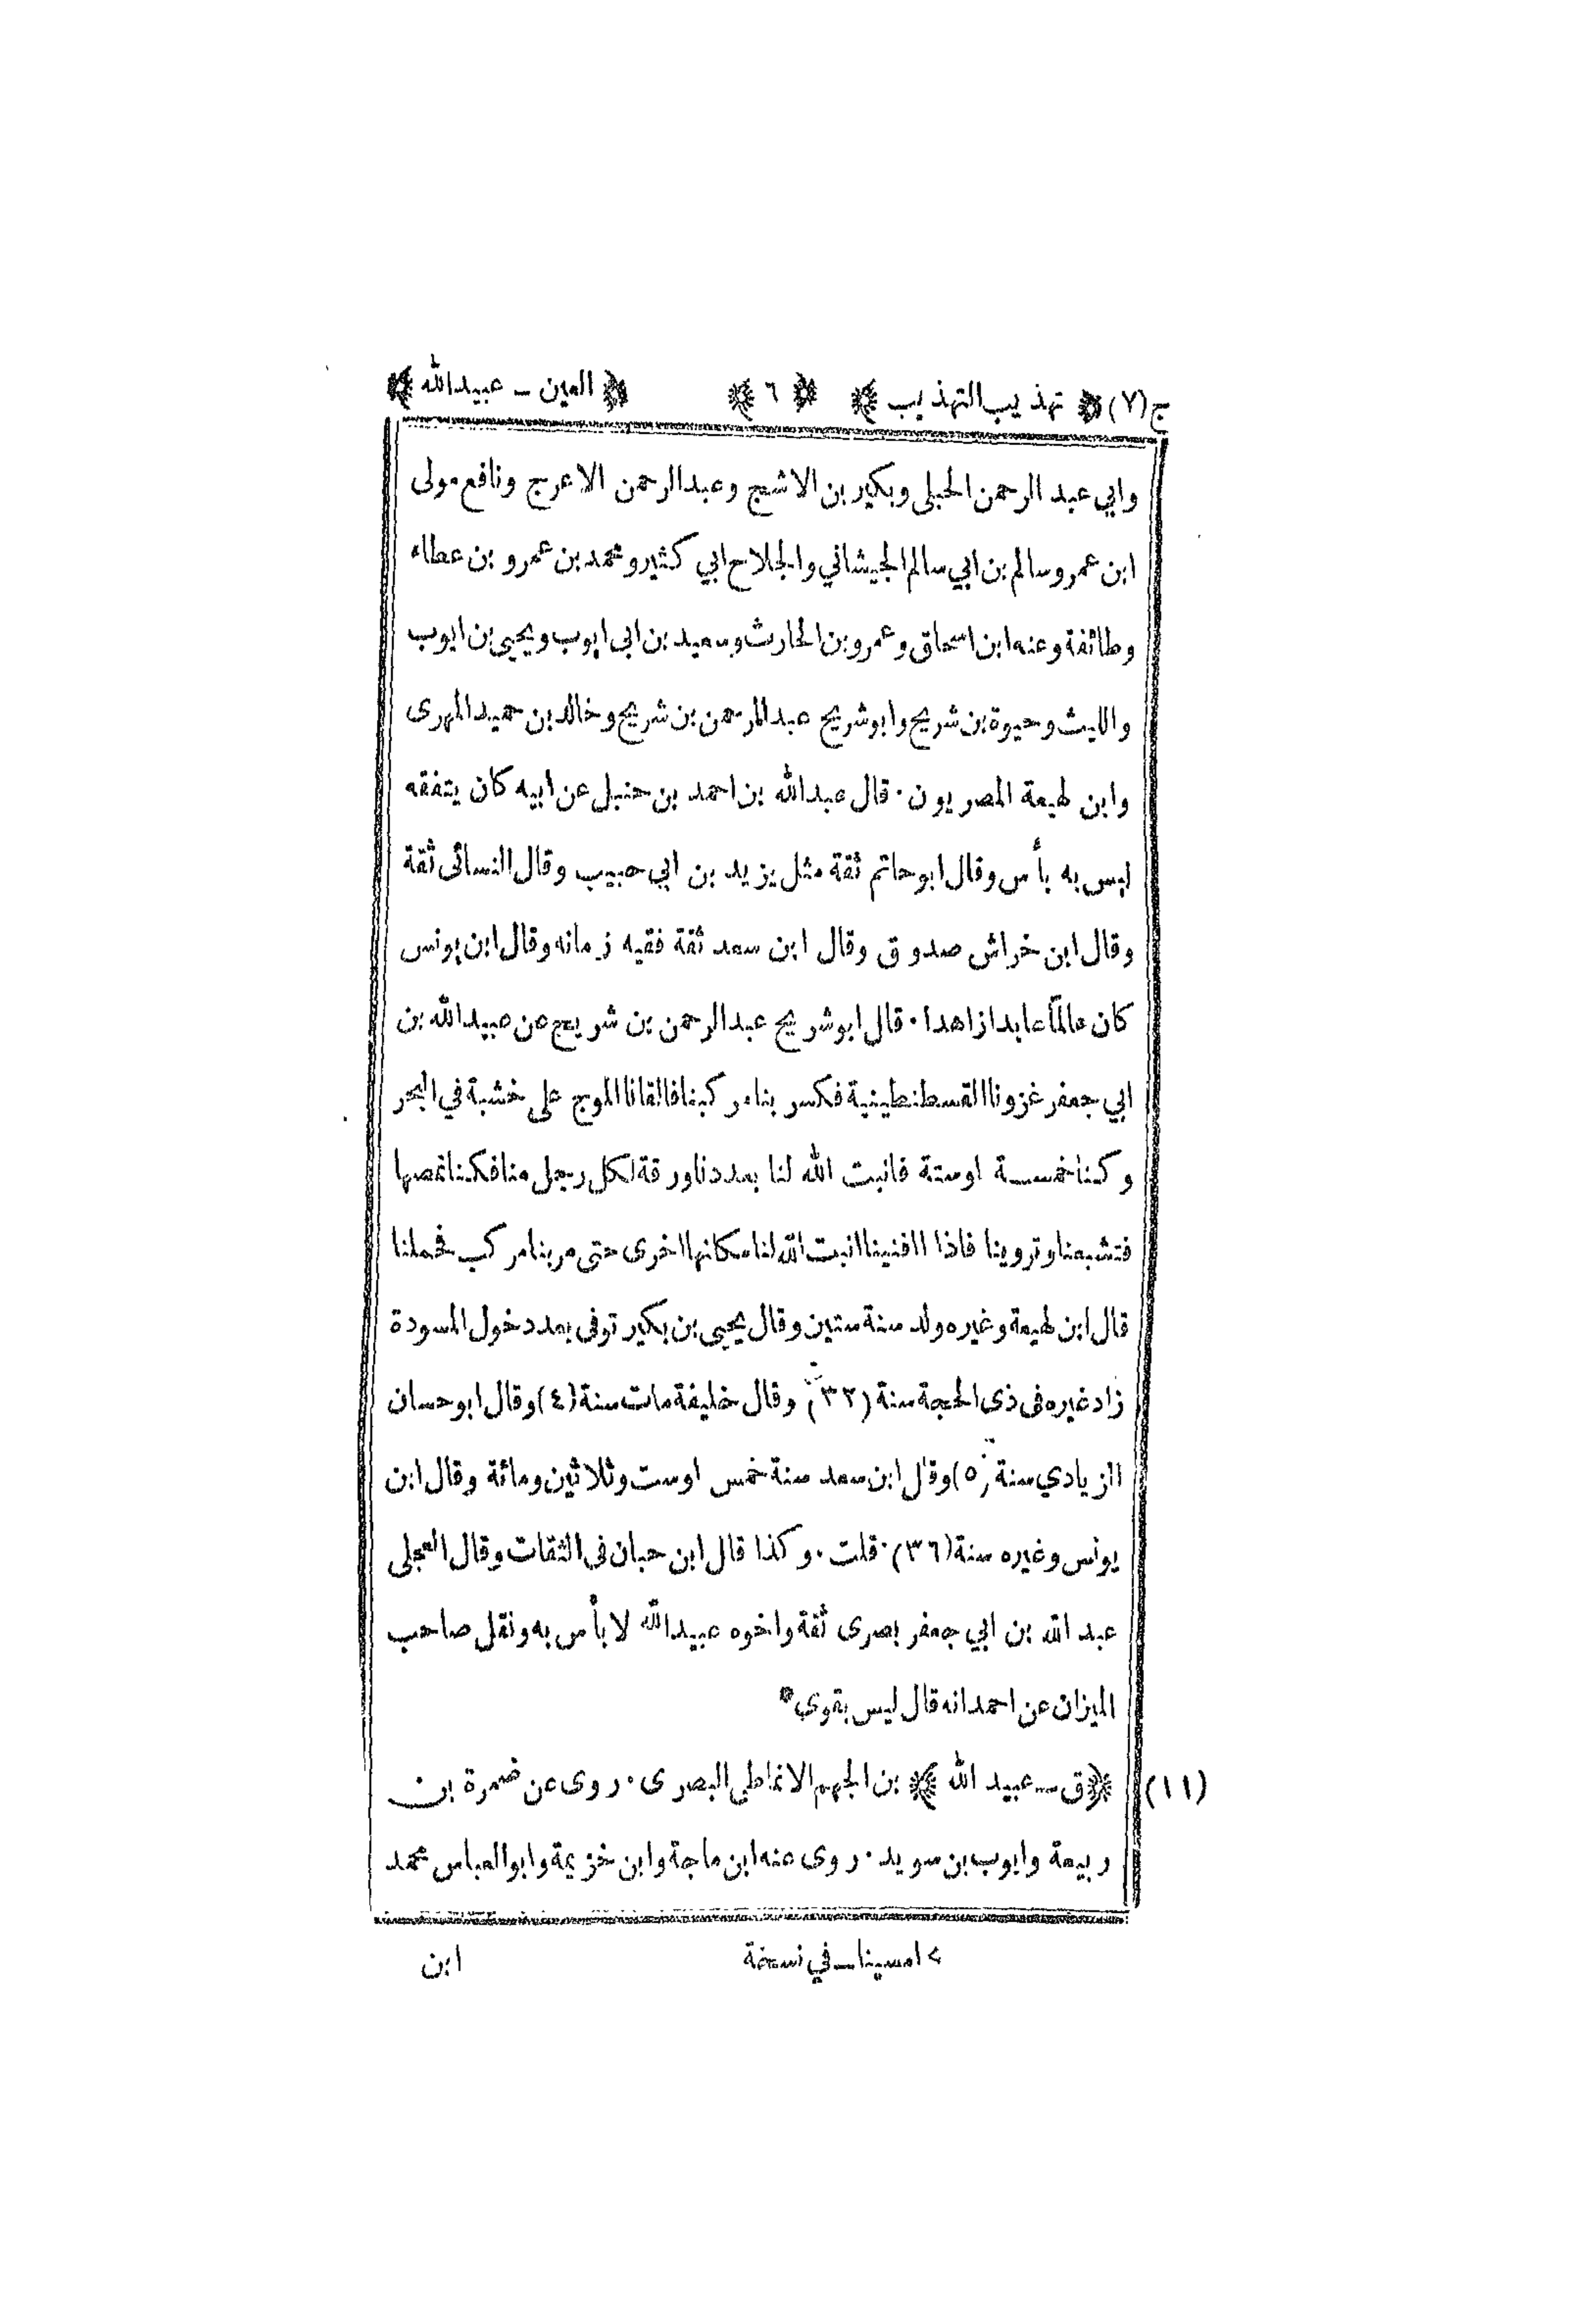 ج(٧) ﴿ تهذيب التهذيب ﴾ ﴿ ٦ ﴾ ﴿ العين ـ عبيدالله ﴾
وابي عبد الرحمن الحبلى وبكير بن الاشج وعبدالرحمن الاعرج ونافع مولى
ابن عمر وسالم بن ابي سالم الجيشاني والجلاح ابي كثير ومحمد بن عمرو بن عطاء
وطائفة وعنه ابن اسحاق وعمرو بن الحارث وسعيد بن ابى ايوب ويحيى بن ايوب
والليث وحيوة بن شريح وابو شريح عبدالرحمن بن شريح وخالد بن حميد المهرى
وابن لهيعة المصريون ٠ قال عبدالله بن احمد بن حنبل عن ابيه كان يتفقه
ليس به بأس وقال ابوحاتم ثقة مثل يزيد بن ابي حبيب وقال النسائى ثقة
وقال ابن خراش صدوق وقال ابن سعد ثقة فقيه زمانه وقال ابن يونس
كان عالما عابدا زاهدا ٠ قال ابوشريح عبدالرحمن بن شريح عن عبيدالله بن
ابي جعفر غزونا القسطنطينية فكسر بنا مركبنا فالقانا الموج على خشبة في البحر
وكنا خمسة اوستة فانبت الله لنا بعددنا ورقة لكل رجل منا فكنا نمصها
فتشبعنا وتروينا فاذا افنينا انبت الله لنا مكانها اخرى حتى مر بنا مركب فحملنا
قال ابن لهيعة وغيره ولد سنة ستين وقال يحيى بن بكير توفى بعد دخول المسودة
زاد غيره فى ذى الحجة سنة (٣٢) وقال خليفة مات سنة (٤) وقال ابوحسان
الزيادي سنة (٥) وقال ابن سعد سنة خمس اوست وثلاثين ومائة وقال ابن
يونس وغيره سنة (٣٦) ٠ قلت ٠ وكذا قال ابن حبان فى الثقات وقال العجلى
عبد الله بن ابي جعفر بصرى ثقة واخوه عبيدالله لا بأس به ونقل صاحب
الميزان عن احمد انه قال ليس بقوي *
(١١) ﴿ ق ـ عبيد الله ﴾ بن الجهم الانماطى البصرى ٠ روى عن ضمرة بن
ربيعة وايوب بن سويد ٠ روى عنه ابن ماجة وابن خزيمة وابو العباس محمد
امسينا ـ في نسخة
ابن